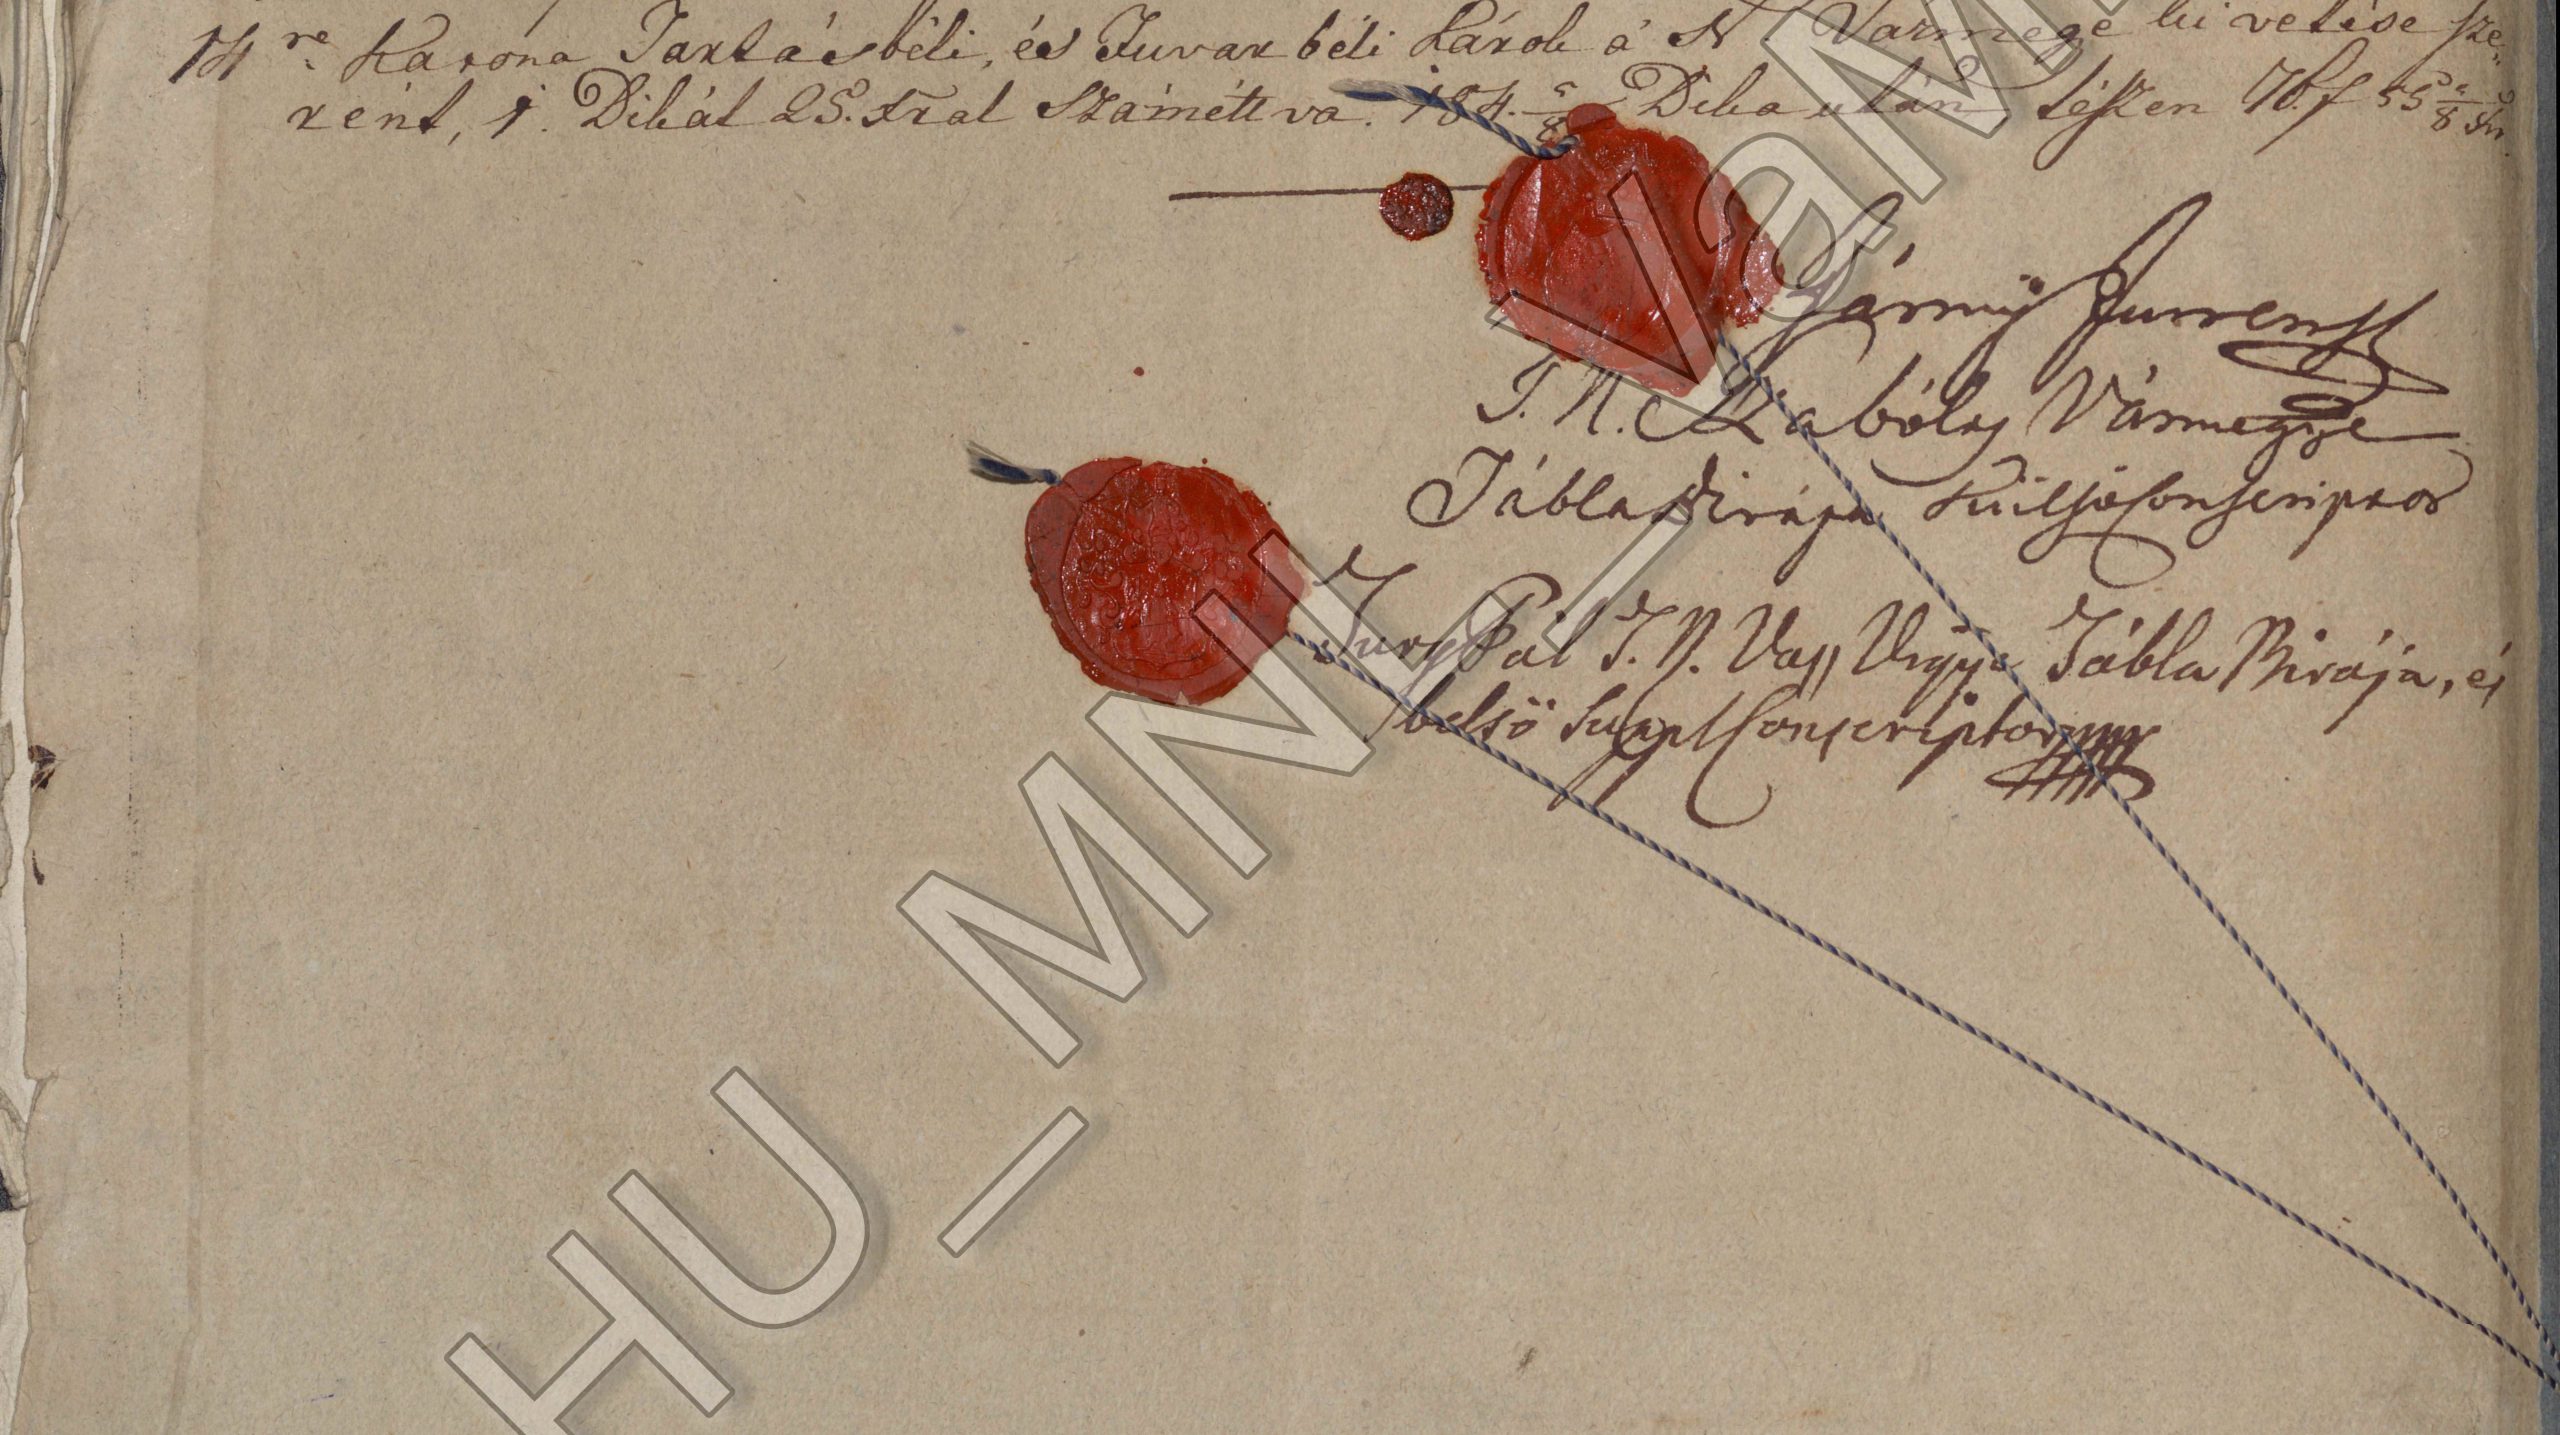 14 re Katona Tartásbéli, és Fuvar béli Károk a' N Vármegye ki vetése sze„
rént, 1. Dikát 25. Xral Számétt va. 184. 5/8 Dika után tészen 76. f 55 5/8 Xr.
Jármÿ Ferentz
T. N. Szabólts Vármegye
Tábla Birája Külsö Conscriptor
Pál T. N. Vass Vgye Tábla Birája, és
belsö Suppl Conscriptor
HU_MNL_VaML